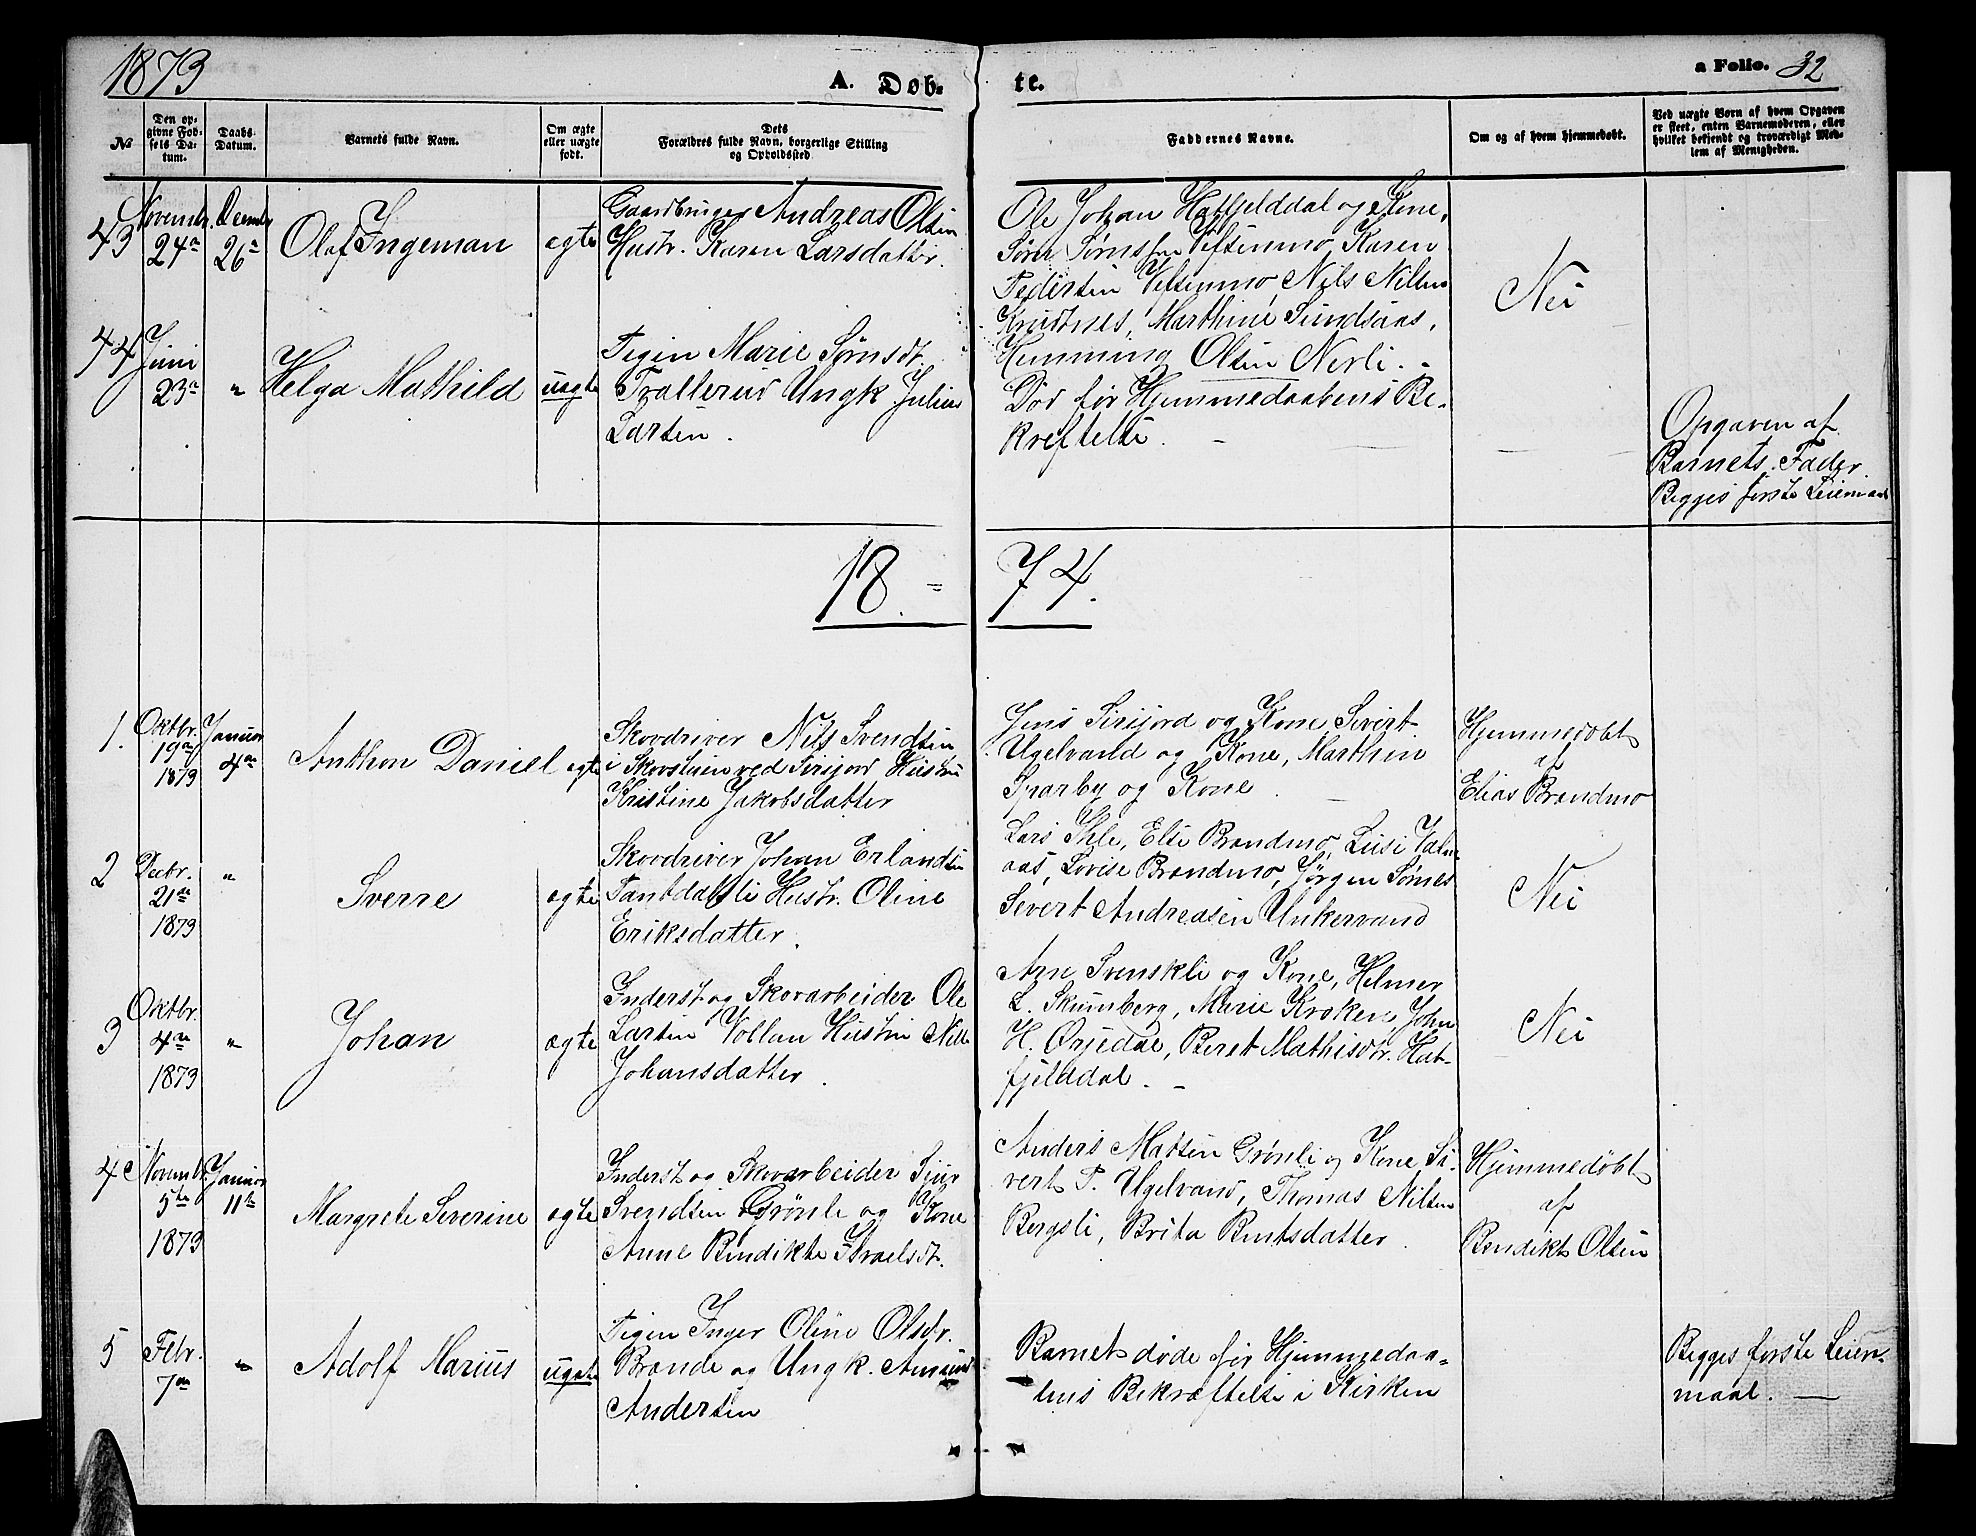 1873
A. Døb-
te.
a Folio. 32
No
Den op-
givne Fød-
sels Da-
tum.
Daabs
Datum.
Barnets fulde Navn.
Om ægte
eller uægte
født.
Dets
Forældres fulde Navn, borgerlige Stilling
og Opholdssted.
Faddernes Navne.
Om og af hvem hjemmedøbt.
Ved uægte Børn af hvem Opgaven
er skeet, enten Barnemoderen, eller
hvilket bekjendt og troværdigt Med-
lem af Menigheden.
43
Novembr
24de
Decembr
26de
Olaf Ingeman
egte
Gaardbruger Andreas Olsen
Hustr. Karen Larsdatter.
Ole Johan Hatfjelddal og Kone,
Vefsenmo, Karen
Pedersen Vefsenmo, Nils Nilsen
Knudtnes, Marthine Sundsaas,
Hemming Olsen Nerli.
Nei
44
Juni
23de
"
Helga Mathild
uegte
Pigen Marie Sørnsdt.
Trallerud Ungk Julius
Larsen.
Død før Hjemmedaabens Be-
kreftelse.
Opgaven af
Barnets Fader
Begges første Leiermaal
18 - 74.
1.
Oktbr.
19de
1873
Januar
4de
Anthon Daniel
egte
Skovdriver Nils Svendsen
i Skovstuen ved Sirijord Hustru
Kristine Jakobsdatter
Jens Sirijord og Kone, Sivert
Ugelvand og Kone, Marthin
Sparby og Kone.
Hjemmedøbt
af
Elias Brandmo
2
Decbr.
21de
1873
"
Sverre
egte
Skovdriver Johan Erlandsen
Hustr. Oline
Eriksdatter.
Lars Skle, Else Brandmo,
Lovise Brandmo, Jørgen Sørnes
Severt Andreasen Unkervand
Nei
3
Oktbr.
4de
1873
"
Johan
ægte
Inderst og Skovarbeider Ole
Larsen Vollan Hustru Nille
Johansdatter.
Arn Svenskli og Kone, Helmer
L. Skumberg, Marie Kroken, John
H. Ørjedal, Beret Mathisdr. Hat-
fjelddal.
Nei
4
Novembr.
5te
1873
Januar
11te
Margrete Severine
egte
Inderst og Skovarbeider Sjur
Svendsen Grønli og Kone
Anne Bendikte Israelsdt.
Anders Matsen Grønli og Kone, Si-
vert P. Ugelvand, Thomas Nilsen
Bergsli, Brita Bentsdatter.
Hjemmedøbt
af
Bendikt Olsen
5
Febr.
7de
"
Adolf Marius
uegte
Pigen Inger Oline Olsdr.
Brande og Ungk. Amund
Andersen
Barnet døde før Hjemmedaa-
bens Bekræftelse i Kirken
Begges første Leier-
maal.